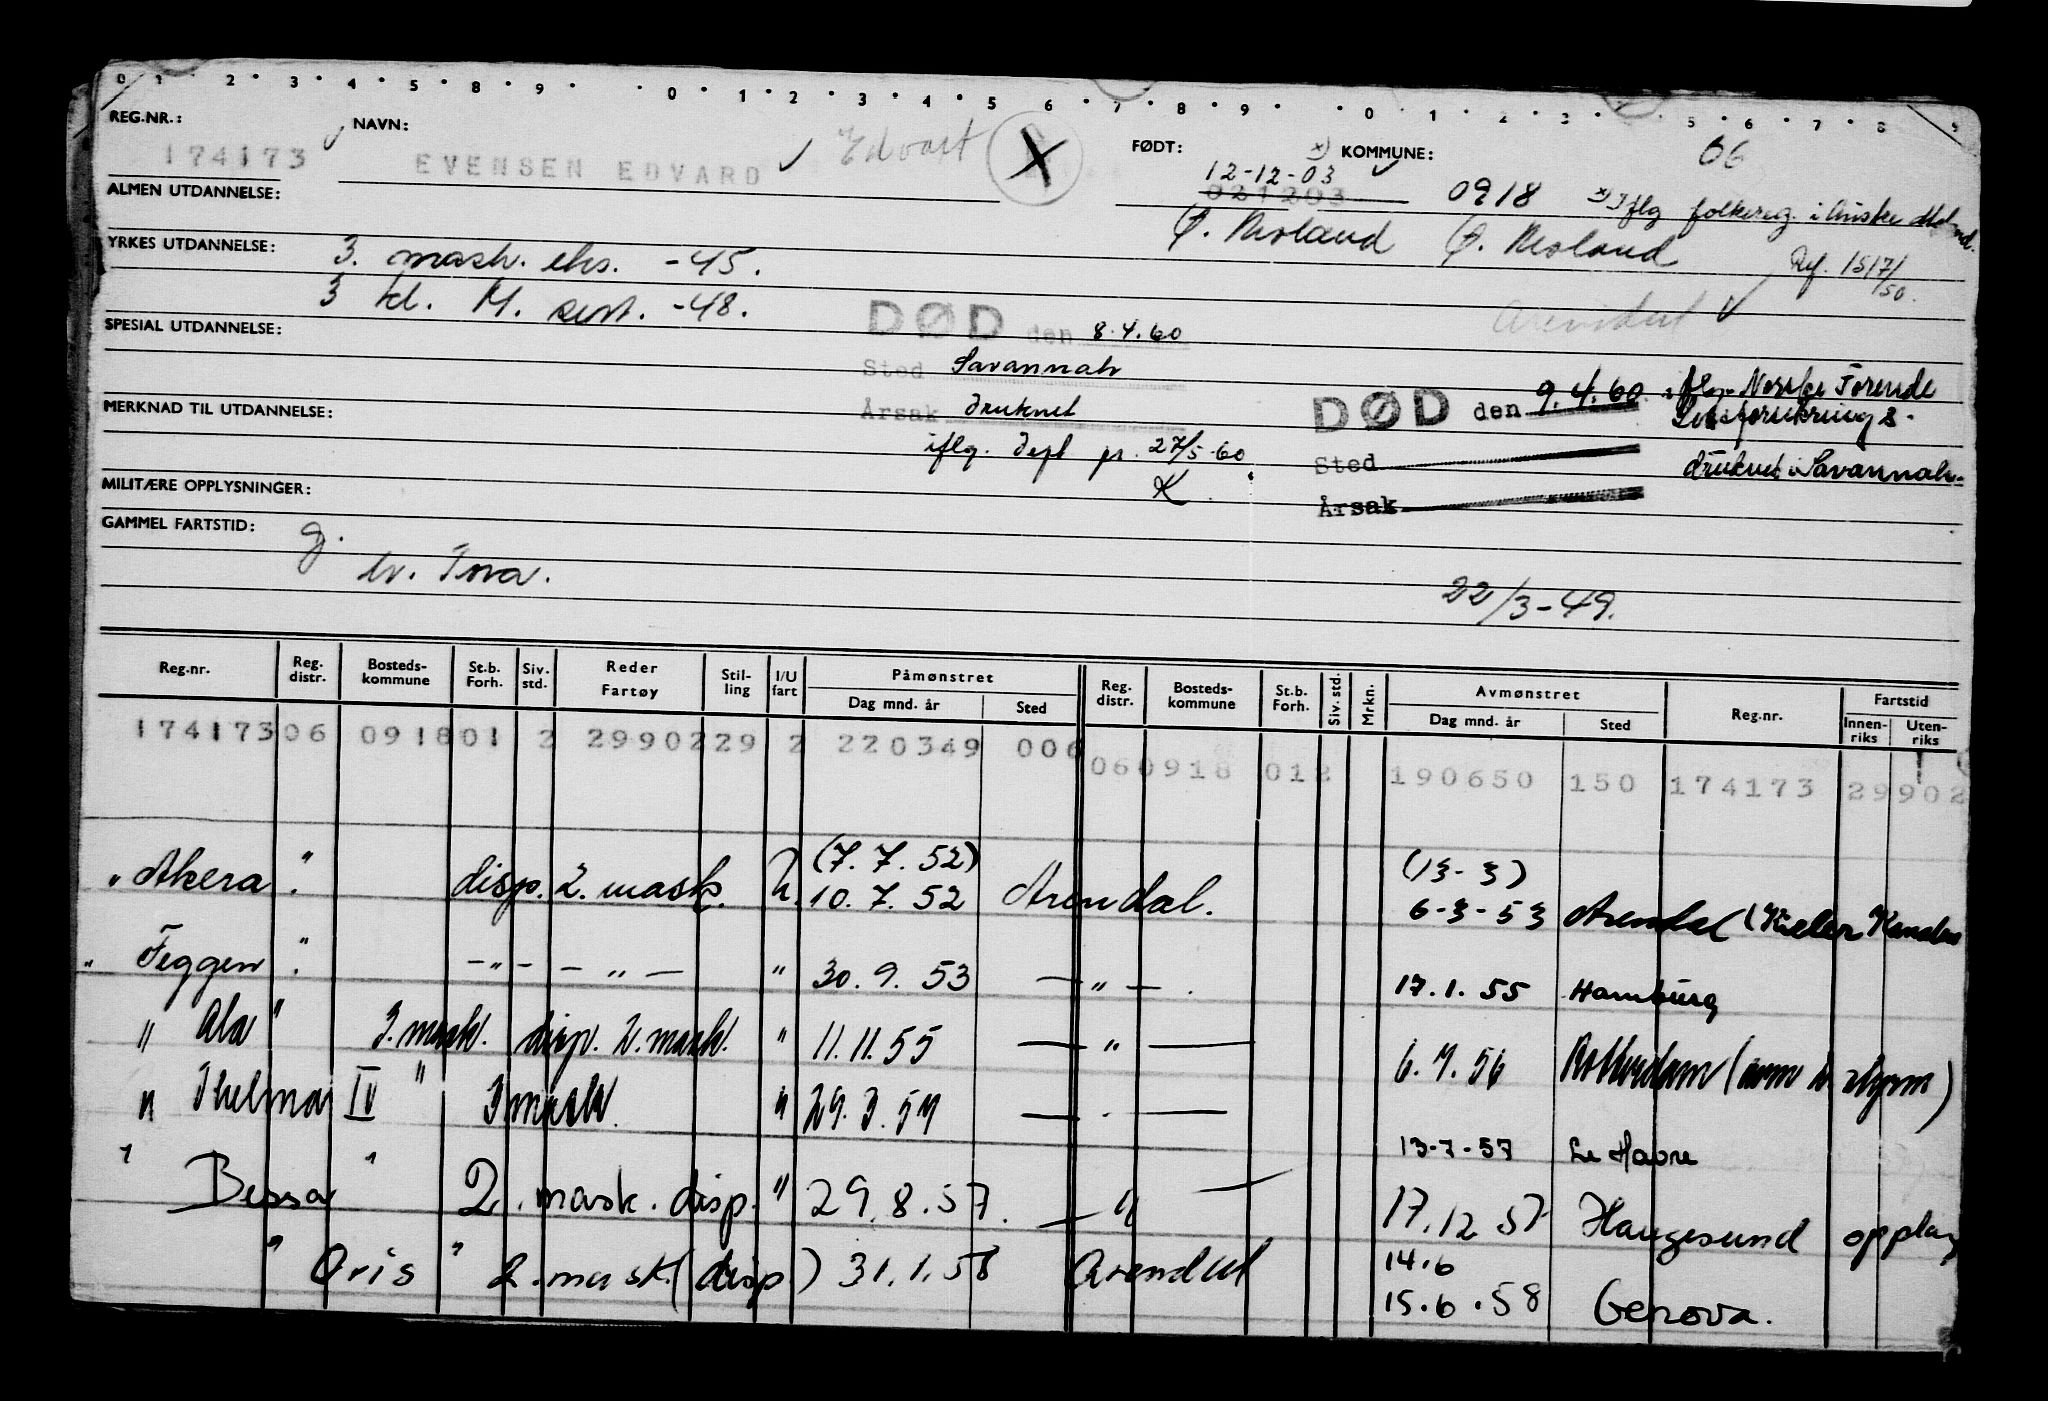 0 1 2 3 4 5 8 9 0 1 2 3 4 5 6 7 8 9 0 1 2 3 5 6 7 8 9
REG.NR.: NAVN: Edvart X FØDT: x) KOMMUNE: 06
174173 EVENSEN EDVARD 12-12-03 0918
021203 x) Iflg folkereg. i
ALMEN UTDANNELSE: Ø. Moland Ø. Moland Ref. 1517/50.
YRKES UTDANNELSE: 3. mask. eks. -45.
3 kl. M. sert. -48. Arendal
SPESIAL UTDANNELSE: DØD den 8.4.60
Sted Savannah
MERKNAD TIL UTDANNELSE: Årsak druknet
DØD den 9.4.60 iflg. Norske
iflg. dept pr. 27/5-60.
Sted druknet i Savannah.
K
MILITÆRE OPPLYSNINGER: Årsak
GAMMEL FARTSTID: g.
Tora. 22/3-49.
Reg.nr. Reg. distr. Bosteds-kommune St.b. Forh. Siv. std. Reder Fartøy Stil-ling I/U fart Påmønstret Dag mnd. år Sted Reg. distr. Bosteds-kommune St.b. Forh. Siv. std. Mrkn. Avmønstret Dag mnd. år Sted Reg.nr. Fartstid Innen-riks Uten-riks
174173 06 0918 01 2 29902 29 2 220349 006 06 0918 01 2 190650 150 174173 29902
(7.7.52) (13-3)
" Akera " disp. 2. mask. U. 10.7.52 Arendal. 6-3-53 Arendal (Kieler Kanalen
" Feggen " - " - - " - " 30.9.53 - " - . 17.1.55 Hamburg
" Ala " 3. mask. disp. 2. mask. " 11.11.55 - " - 6.7.56 Rotterdam
" Thelma IV " 3 mask. " 29.3.57 - " - 13-7-57 Le Havre
" Bessa " 2. mask. disp. " 29.8.57. - " - 17.12.57 Haugesund opplag
" Oris " 2. mask. (disp.) 31.1.58 Arendal 14.6
15.6.58 Genova.